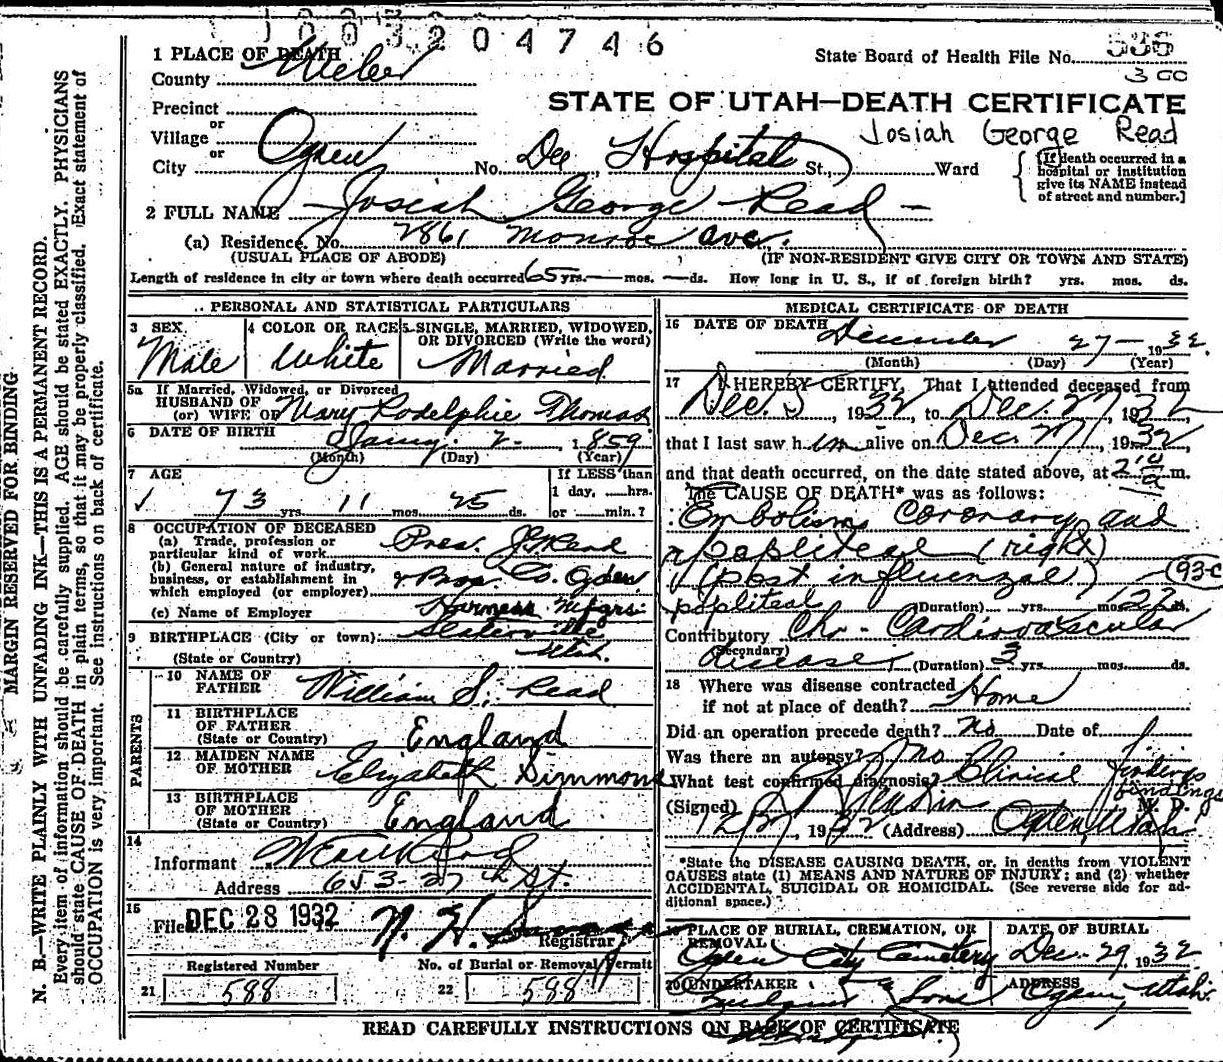 1003204746
1 PLACE OF DEATH
State Board of Health File No. 536
300
County Weber
STATE OF UTAH—DEATH CERTIFICATE
Precinct
or
Village
Josiah George Read
or
City Ogden No. Dee Hospital St., Ward
[If death occurred in a
hospital or institution
give its NAME instead
of street and number.]
2 FULL NAME Josiah George Read
(a) Residence. No. 2861 Monroe Ave.
(USUAL PLACE OF ABODE) (IF NON-RESIDENT GIVE CITY OR TOWN AND STATE)
Length of residence in city or town where death occurred 65 yrs. — mos. — ds. How long in U. S., if of foreign birth? yrs. mos. ds.
PERSONAL AND STATISTICAL PARTICULARS
3 SEX 4 COLOR OR RACE 5 SINGLE, MARRIED, WIDOWED,
OR DIVORCED (Write the word)
Male White Married
5a If Married, Widowed, or Divorced
HUSBAND OF
(or) WIFE OF Mary Rodelphie Thomas
6 DATE OF BIRTH Jany. 2 - 1859
(Month) (Day) (Year)
7 AGE If LESS than
1 day, hrs.
73 yrs. 11 mos. 25 ds. or min.?
8 OCCUPATION OF DECEASED
(a) Trade, profession or
particular kind of work Pres. J G Read
(b) General nature of industry,
business, or establishment in
which employed (or employer) & Bros. Co. Ogden
(c) Name of Employer Harness Mfgrs.
9 BIRTHPLACE (City or town) Slaterville
(State or Country) Utah.
PARENTS
10 NAME OF
FATHER William S. Read
11 BIRTHPLACE
OF FATHER
(State or Country) England
12 MAIDEN NAME
OF MOTHER Elizabeth Simmons
13 BIRTHPLACE
OF MOTHER
(State or Country) England
14
Informant
Address 653-27th St.
15
Filed DEC 28 1932 N. H.
Registrar
Registered Number No. of Burial or Removal Permit
21 588 22 588
MEDICAL CERTIFICATE OF DEATH
16 DATE OF DEATH December 27 — 1932
(Month) (Day) (Year)
17 I HEREBY CERTIFY, That I attended deceased from
Dec. 5, 1932, to Dec. 27, 1932
that I last saw him alive on Dec. 27, 1932
and that death occurred, on the date stated above, at m.
The CAUSE OF DEATH* was as follows:
Embolism Coronary and
popliteal (right)
(post influenzal) 93-c
popliteal (Duration) yrs. mos. 22 ds.
Contributory Chr. Cardiovascular
(Secondary)
disease (Duration) 3 yrs. mos. ds.
18 Where was disease contracted
if not at place of death? Home
Did an operation precede death? No Date of
Was there an autopsy? No
What test confirmed diagnosis? Clinical findings
findings
(Signed) M. D.
12/27, 1932 (Address) Ogden, Utah
*State the DISEASE CAUSING DEATH, or, in deaths from VIOLENT
CAUSES state (1) MEANS AND NATURE OF INJURY; and (2) whether
ACCIDENTAL, SUICIDAL OR HOMICIDAL. (See reverse side for ad-
ditional space.)
19 PLACE OF BURIAL, CREMATION, OR DATE OF BURIAL
REMOVAL
Ogden City Cemetery Dec. 29, 1932
20 UNDERTAKER ADDRESS
& Sons Ogden, Utah.
READ CAREFULLY INSTRUCTIONS ON BACK OF CERTIFICATE
MARGIN RESERVED FOR BINDING
N. B.—WRITE PLAINLY WITH UNFADING INK—THIS IS A PERMANENT RECORD.
Every item of information should be carefully supplied. AGE should be stated EXACTLY. PHYSICIANS
should state CAUSE OF DEATH in plain terms, so that it may be properly classified. Exact statement of
OCCUPATION is very important. See instructions on back of certificate.